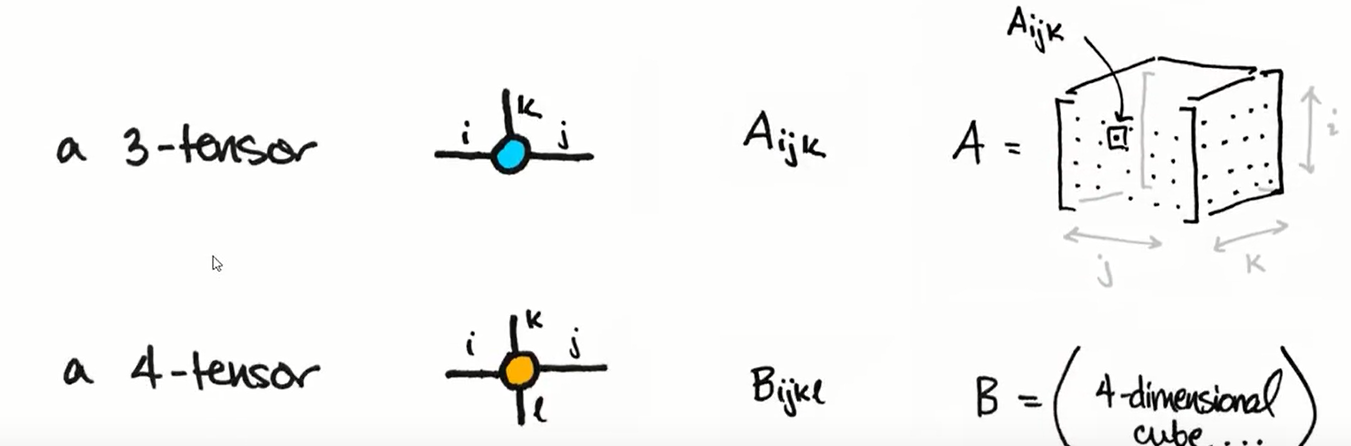 Aijk
a 3-tensor
i k j
Aijk
A =
i
j
k
a 4-tensor
i k j
l
Bijkl
B = ( 4-dimensional
cube.... )